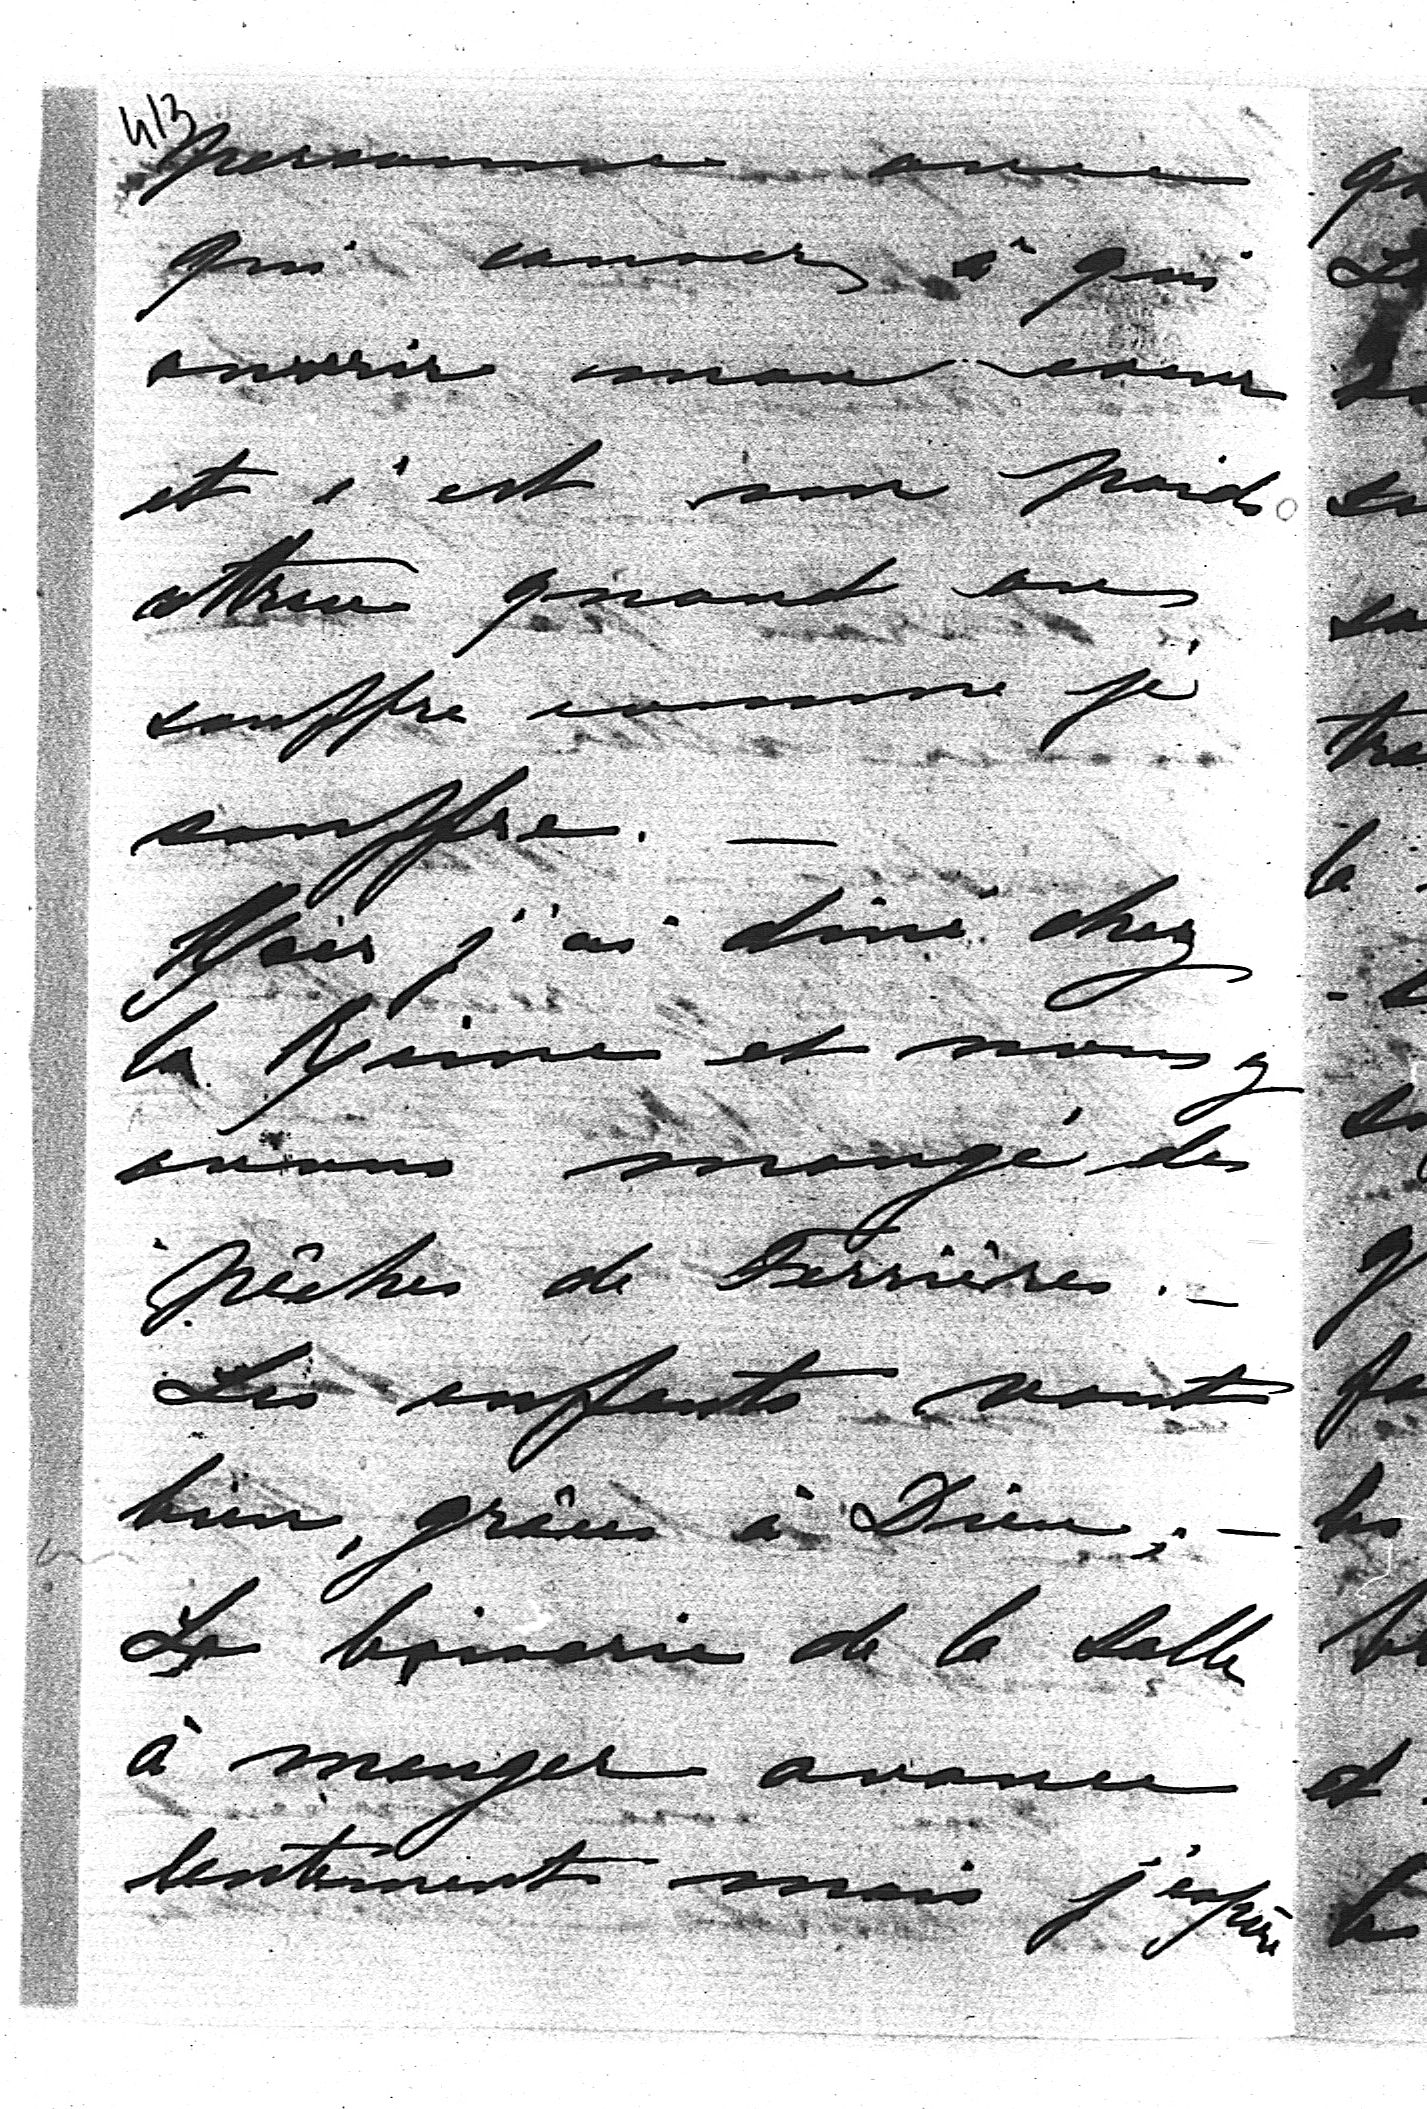 4/3
personne avec
qui causer, à qui
ouvrir mon coeur
et c'est un poids
affreux quand on
souffre comme je
souffre. —
Hier j'ai dîné chez
la Reine et nous y
avons mangé des
pêches de Ferrières. —
Les enfants vont
bien, grâces à Dieu. —
La boiserie de la salle
à manger avance
lentement mais j'espère